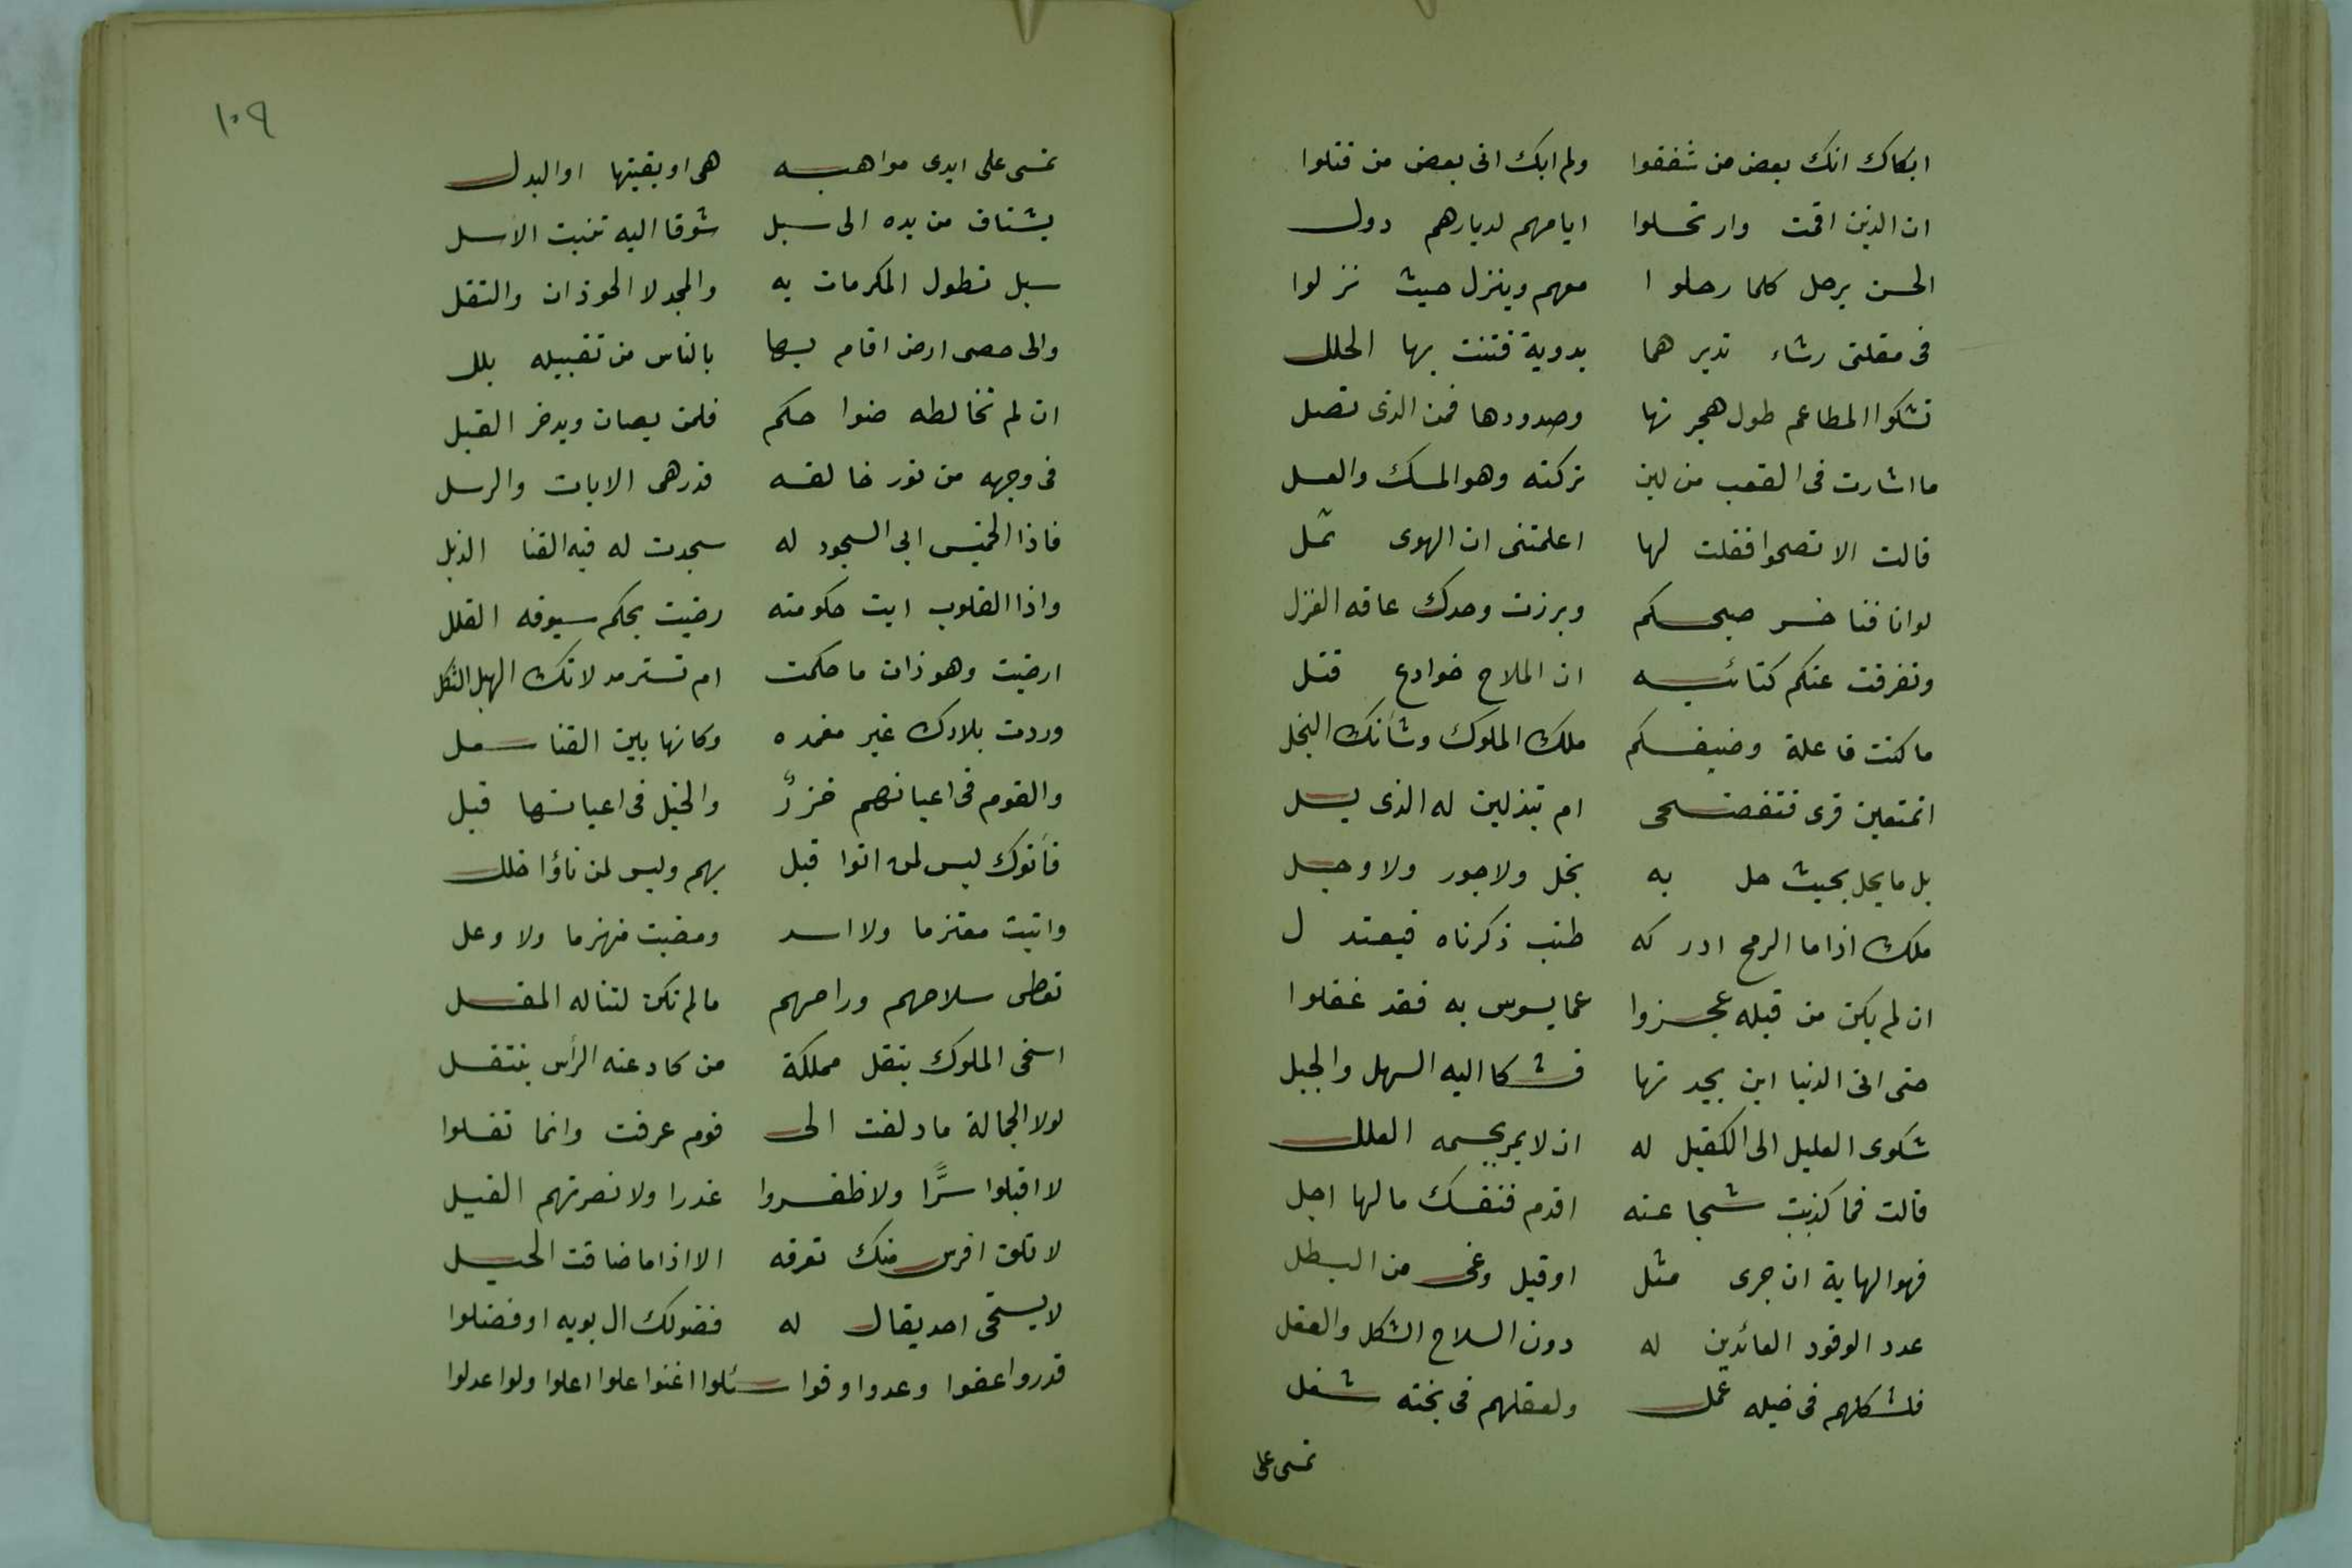 ابكاك انك بعض من شففوا ولم ابك انى بعض من قتلوا
ان الذين اقمت وارتحلوا ايامهم لديارهم دول
الحسن يرحل كلما رحلوا معهم وينزل حيث نزلوا
فى مقلتى رشاء تديرهما بدوية فتنت بها الحلل
تشكوا المطاعم طول هجرتها وصدودها فمن الذى تصل
ما اشارت فى القعب من لبن تركته وهو المسك والعسل
قالت الا تصحوا فقلت لها اعلمتنى ان الهوى ثمل
لو ان فنا خسر صبحكم وبرزت وحدك عاقه الغزل
وتفرقت عنكم كتائبه ان الملاح خوادع قتل
ما كنت فاعلة وضيفكم ملك الملوك وشأنك البخل
اتمتعين قرى فتفضحى ام تبذلين له الذى يسل
بل ما يحل بحيث حل به بخل ولا جور ولا وجل
ملك اذا ما الرمح ادركه طنب ذكرناه فيعتدل
ان لم يكن من قبله عجزوا عما يسوس به فقد غفلوا
حتى اتى الدنيا ابن بجدتها فشكا اليه السهل والجبل
شكوى العليل الى الكفيل له ان لا يمر بجسمه العلل
قالت فما كذبت شجاعته اقدم فنفسك ما لها اجل
فهو النهاية ان جرى مثل او قيل وغى من البطل
عدد الوفود العائدين له دون السلاح الشكل والعقل
فلشكلهم فى خيله عمل ولعقلهم فى بخته شغل
تمسى على
١٠٩
تمسى على ايدى مواهبه هى او بقيتها او البدل
يشتاق من يده الى سبل شوقا اليه تنبت الاسل
سبل تطول المكرمات به والمجد لا الحوذان والنفل
والى حصى ارض اقام بها بالناس من تقبيله يلل
ان لم تخالطه ضواحكم فلمن يصان ويدخر القبل
فى وجهه من نور خالقه قدر هى الايات والرسل
فاذا الخميس ابى السجود له سجدت له فيه القنا الذبل
واذا القلوب ابت حكومته رضيت بحكم سيوفه القلل
ارضيت وهوذان ما حكمت ام تستزمد لانك الهبل الثكل
وردت بلادك غير مغمده وكانها بين القنا شعل
والقوم فى اعيانهم خزرٌ والخيل فى اعيانها قبل
فأتوك ليس لمن اتوا قبل بهم وليس لمن نأوا خلل
واتيت معتزما ولا اسد ومضيت منهزما ولا وعل
تعطى سلاحهم وراحهم ما لم تكن لتناله المقل
اسخى الملوك بنقل مملكة من كاد عنه الرأس ينتقل
لولا الجهالة ما دلفت الى قوم غرقت وانما تفلوا
لا اقبلوا سرًّا ولا ظفروا غدرا ولا نصرتهم الغيل
لا تلق افرس منك تعرفه الا اذا ما ضاقت الحيل
لا يستحى احد يقال له فضولك ال بويه او فضلوا
قدروا عفوا وعدوا وفوا سئلوا اغنوا علوا اعلوا ولوا عدلوا